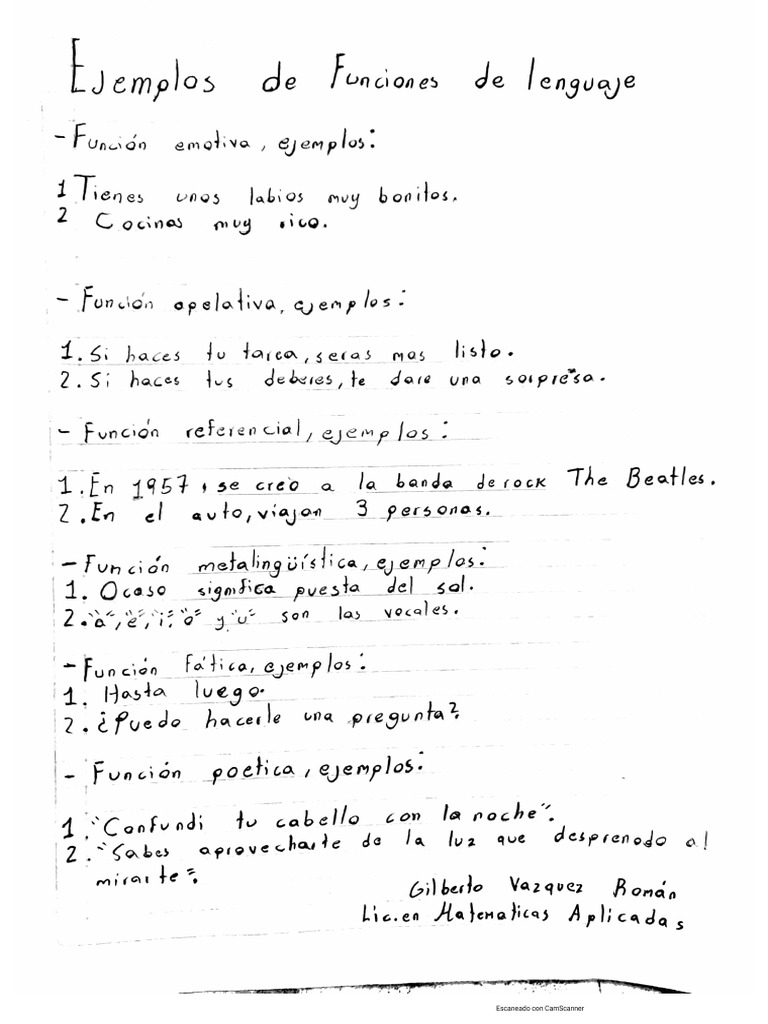 Ejemplos de Funciones de lenguaje
- Función emotiva, ejemplos:
1 Tienes unos labios muy bonitos.
2 Cocinas muy rico.
- Función apelativa, ejemplos:
1. Si haces tu tarea, seras mas listo.
2. Si haces tus deberes, te dare una sorpresa.
- Función referencial, ejemplos:
1. En 1957, se creo a la banda de rock The Beatles.
2. En el auto, viajan 3 personas.
- Función metalingüística, ejemplos:
1. Ocaso significa puesta del sol.
2. "a", "e", "i", "o" y "u" son las vocales.
- Función fática, ejemplos:
1. Hasta luego.
2. ¿Puedo hacerle una pregunta?
- Función poetica, ejemplos:
1. "Confundi tu cabello con la noche".
2. "Sabes aprovecharte de la luz que desprendo al
mirarte".
Gilberto Vazquez Román
Lic. en Matematicas Aplicadas
Escaneado con CamScanner